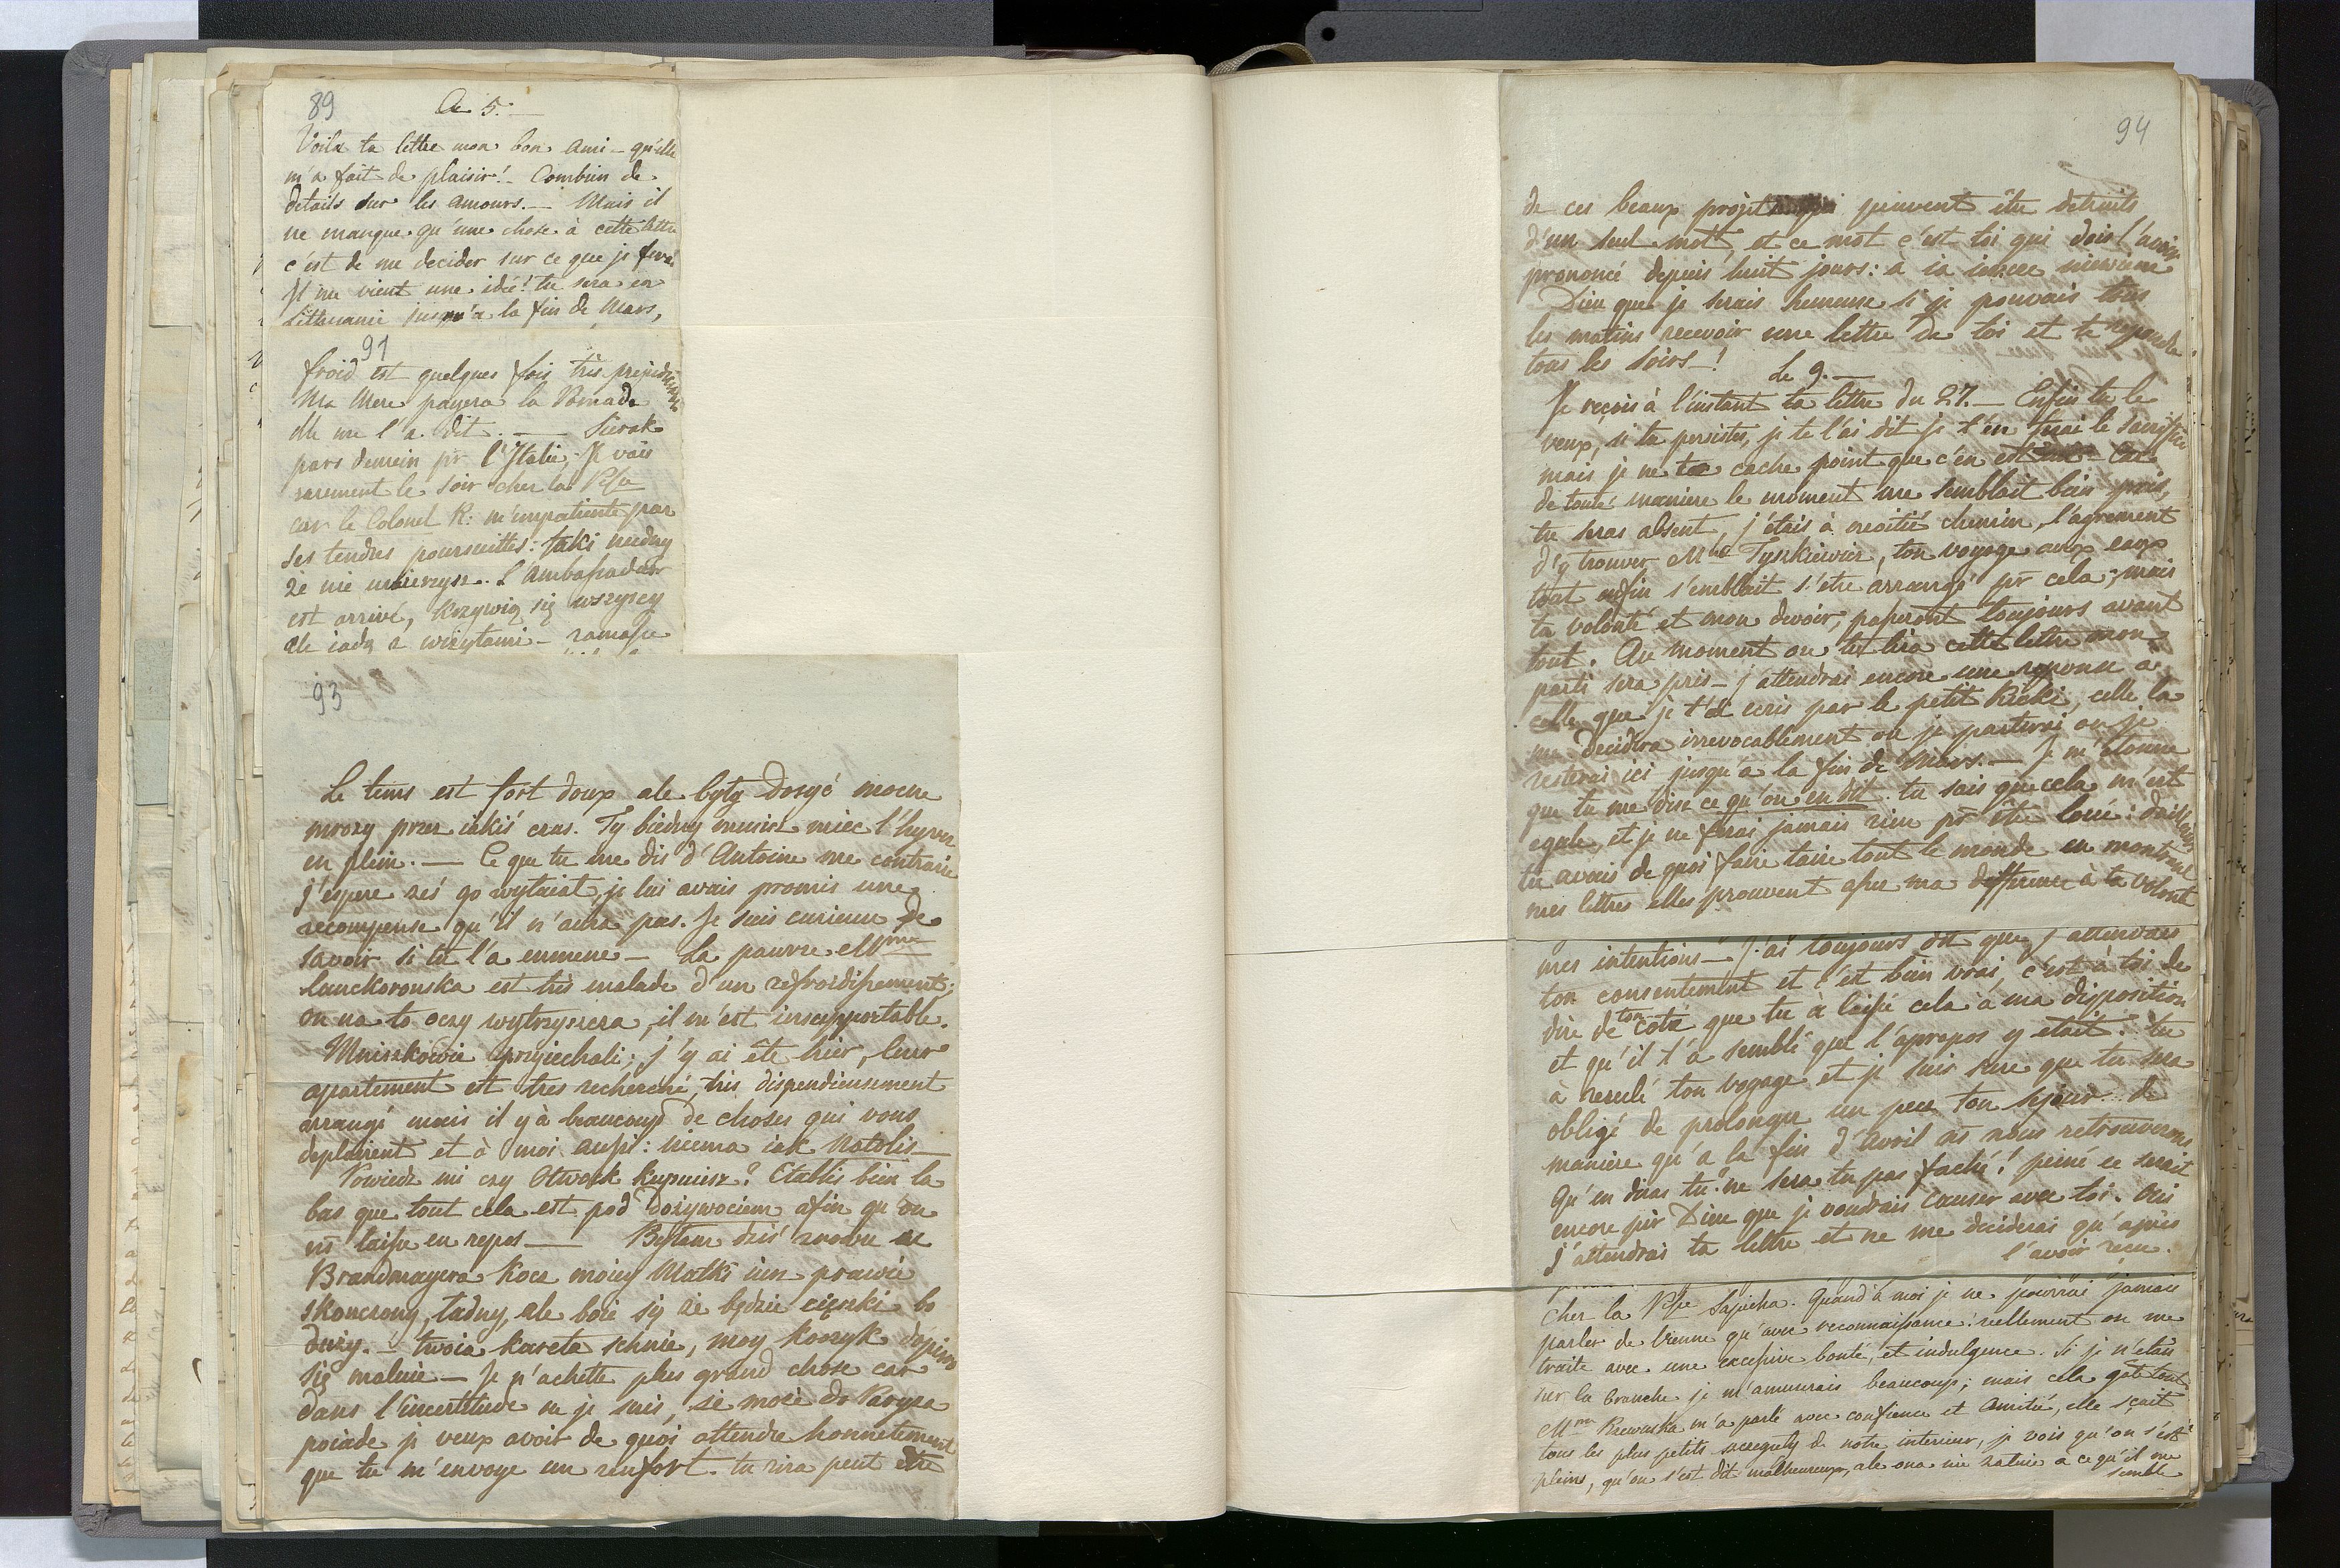 89
Le 5.—
Voila ta lettre mon bon ami - qu'elle
m'a fait de plaisir! - Combien de
details sur les amours. — Mais il
ne manque qu'une chose à cette lettre
c'est de me decider sur ce que je ferai
Il me vient une idée! tu sera en
Lithuanie jusqu'a la fin de Mars,
91
froid est quelques fois très
Ma Mere payera la Pomade
elle me l'a dit. — Sierak
pars demain pr l'Italie, Je vais
rarement le soir cher la Psse
car le Colonel R: m'impatiente par
ses tendres poursuittes: taki nudny
że nie uwierzysz. L'Ambassador
est arrivé, krzywią się wszyscy
ale iadą z wizytami -
93
Le tems est fort doux ale były dosyć mocne
mrozy przez iakiś czas. Ty biedny musisz miec l'hyver
en plein. — Ce que tu me dis d'Antoine me contrarie
j'espere żeś go wyłaiał, je lui avais promis une
recompense qu'il n'aura pas. Je suis curieuse de
savoir si tu l'a emmené — La pauvre Mme
Lanckoronska est très malade d'un refroidissement;
on na to oczy wytrzyszcza, il m'est insupportable.
Mniszkowie przyiechali; j'y ai été hier, leur
apartement est tres recherché, très dispendieusement
arrangé mais il y à beaucoup de choses qui vous
deplairient et à moi aussi: niema iak Natolin —
Powiedz mi czy Otwock kupuiesz? Etablis bien la
bas que tout cela est pod Dożywociem afin qu'on
ns laisse en repos — Byłam dziś znowu u
Brandmayera kocz moiey Matki iusz prawie
skonczony, ładny, ale boie się że będzie cięszki bo
duży. — twoia kareta schnie, moy koczyk dopiero
się maluie — Je n'achette plus grand chose car
dans l'incertitude ou je suis, że może do Paryża
poiade je veux avoir de quoi attendre honnetement
que tu m'envoye un renfort. tu rira peut etre
94
de ces beaux projets qui peuvent être detruits
d'un seul mot, et ce mot c'est toi qui dois l'avoir
prononcé depuis huit jours: a ia ieszcze niewiem
Dieu que je serais heureuse si je pouvais tous
les matins recevoir une lettre de toi et te repondre
tous les soirs —!
Le 9. —
Je reçois à l'instant ta lettre du 27. — Enfin tu le
veux, si tu persistes, je te l'ai dit je t'en ferai le sacrifice
mais je ne te cache point que c'en est un — Car
de toute maniere le moment me semblait bien pris,
tu seras absent, j'étais à moitié chemin, l'agrement
d'y trouver Mde Tyszkiewicz, ton voyage aux eaux
tout enfin semblait s'etre arrangé pr cela; mais
ta volonté et mon devoir, passeront toujours avant
tout. Au moment ou tu lira cette lettre mon
parti sera pris — j'attendrai encore une reponse a
celle que je t'ai ecris par le petit Ricki, celle la
me decidera irrevocablement ou je partirai ou je
resterai ici jusqu'a la fin de Mars. — Je m'étonne
que tu me dise ce qu'on en dit. tu sais que cela m'est
egale, et je ne ferai jamais rien pr être loué: d'ailleurs
tu avais de quoi faire taire tout le monde en montrant
mes lettres elles prouvent assez ma defference à ta volonté
mes intentions — J'ai toujours dit que j'attendais
ton consentement et c'est bien vrai, c'est à toi de
dire de ton coté que tu à laissé cela à ma disposition
et qu'il t'a semblé que l'apropos y etait. tu
à reculé ton voyage et je suis sure que tu sera
obligé de prolonger un peu ton sejour. de
maniere qu'a la fin d'avril ns nous retrouverons
Qu'en diras tu? ne sera tu pas faché? peiné ce serait
encore pir Dieu que je voudrais causer avec toi. Oui
j'attendrai ta lettre et ne me deciderai qu'après
l'avoir reçu.
cher la Psse Sapieha. Quand à moi je ne pourrai jamais
parler de Vienne qu'avec reconnaissance: réellement on me
traite avec une excessive bonté, et indulgence. Si je n'étais
sur la branche je m'amuserais beaucoup; mais cela gâte tout.
Mme Rzewuska m'a parlé avec confience et amitié, elle sçait
tous les plus petits szczeguly de notre interieur, je vois qu'on s'est
pleins, qu'on s'est dit malheureux, ale ona nie a ce qu'il me
semble